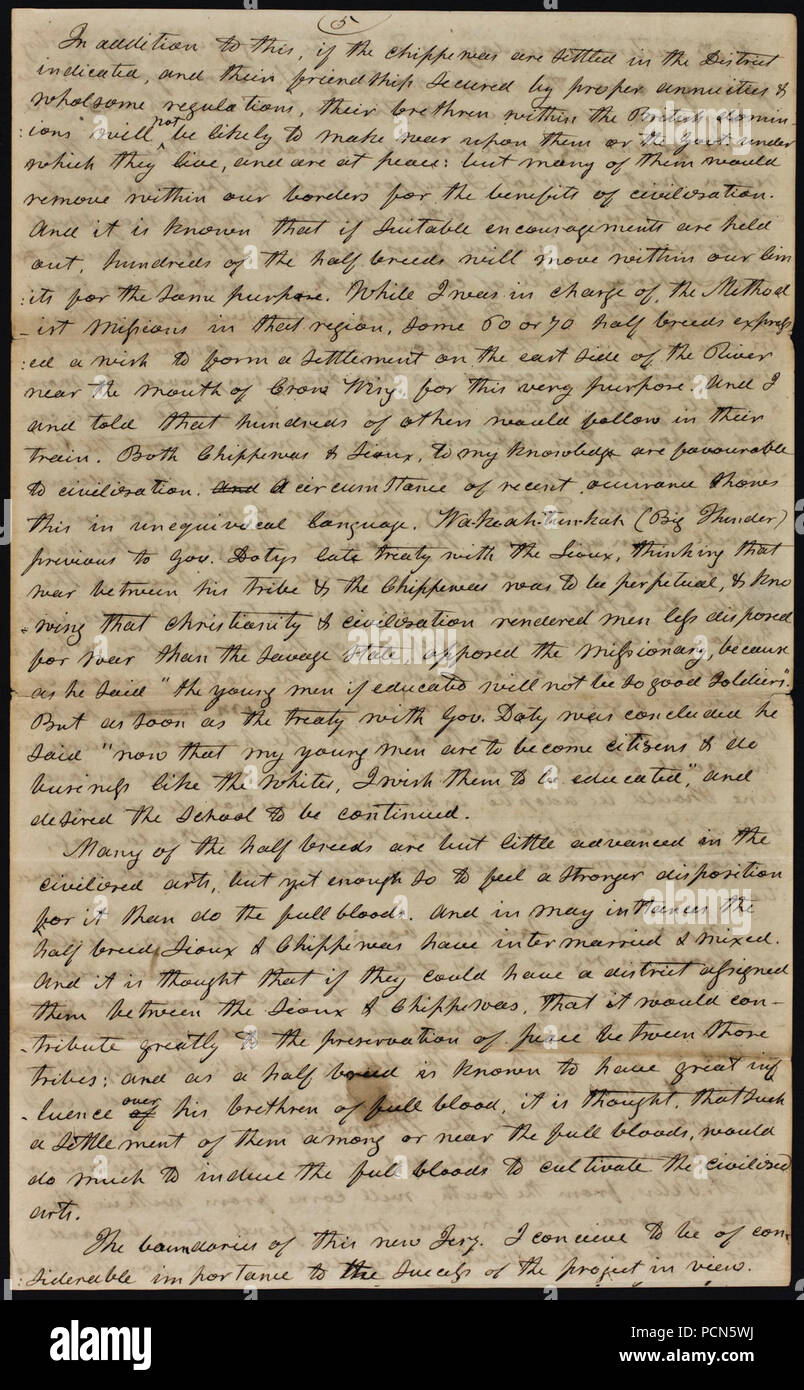 5
In addition to this, if the Chippewas are settled in the District
indicated, and their friendship secured by proper annuities &
wholsome regulations, their brethren within the British domin-
:ions" will not be likely to make war upon them or the Govt. under
which they live, and are at peace: but many of them would
remove within our borders for the benefits of civilisation.
And it is known that if suitable encouragements are held
out, hundreds of the half breeds will move within our lim
:its for the same purpose. While I was in charge of the Method
-ist Missions in that region, some 60 or 70 half breeds express
:ed a wish to form a settlement on the east side of the River
near the mouth of Crow Wing, for this very purpose. And I
and told that hundreds of others would follow in their
train. Both Chippewas & Sioux, to my knowledge are favourable
to civilisation. And A circumstance of recent occurance shows
this in unequivocal language. Wa-ke-ah-tun-kah (Big Thunder)
previous to Gov. Dotys late treaty with the Sioux, thinking that
war between his tribe & the Chippewas was to be perpetual, & kno
-wing that christianity & civilisation rendered men less disposed
for war than the savage state opposed the missionary, because
as he said "the young men if educated will not be so good soldiers".
But as soon as the treaty with Gov. Doty was concluded he
said "now that my young men are to become citizens & do
business like the whites, I wish them to be educated", and
desired the school to be continued.
Many of the half breeds are but little advanced in the
civilised arts, but yet enough so to feel a stronger disposition
for it than do the full bloods. And in many instances the
half breed Sioux & Chippewas have intermarried & mixed.
And it is thought that if they could have a district assigned
them between the Sioux & Chippewas, that it would con-
-tribute greatly to the preservation of peace between those
tribes; and as a half breed is known to have great inf
-luence of over his brethren of full blood, it is thought, that such
a settlement of them among or near the full bloods, would
do much to induce the full bloods to cultivate the civilised
arts.
The boundaries of this new Tery. I concieve to be of con-
:siderable importance to the success of the project in view.
alamy
Image ID: PCN5WJ
www.alamy.com